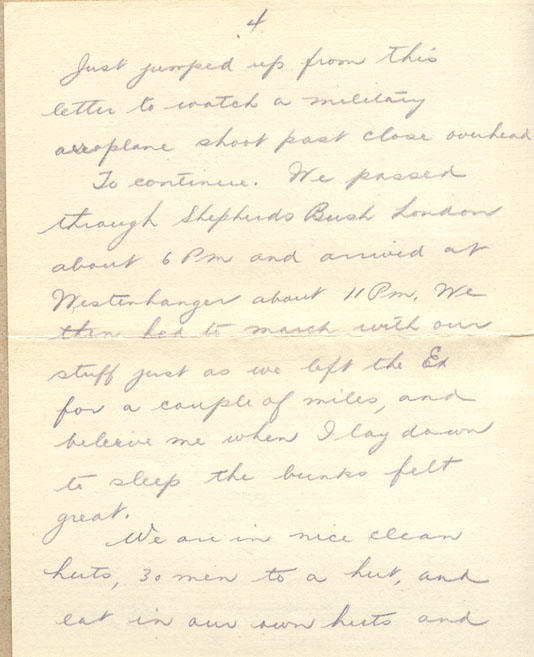 4
Just jumped up from this
letter to watch a military
aeroplane shoot past close overhead
To continue. We passed
through Shepherds Bush London
about 6 Pm and arrived at
Westenhanger about 11 Pm. We
then had to march with our
stuff just as we left the Ex
for a couple of miles, and
beleive me when I lay down
to sleep the bunks felt
great.
We are in nice clean
huts, 30 men to a hut, and
eat in our own huts and